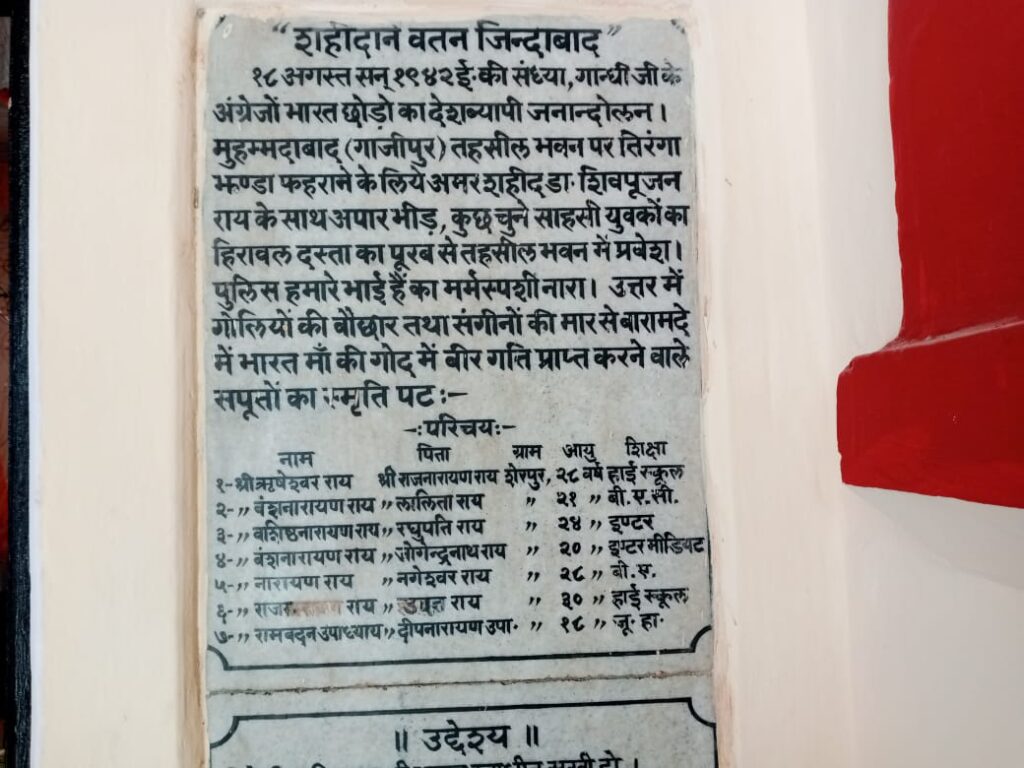 "शहीदाने वतन जिन्दाबाद"
१८ अगस्त सन् १९४२ ई॰ की संध्या, गान्धी जी के
अंग्रेजों भारत छोड़ो का देशब्यापी जनान्दोलन।
मुहम्मदाबाद (गाजीपुर) तहसील भवन पर तिरंगा
झण्डा फहराने के लिये अमर शहीद डा॰ शिवपूजन
राय के साथ अपार भीड़, कुछ चुने साहसी युवकों का
हिरावल दस्ता का पूरब से तहसील भवन में प्रवेश।
पुलिस हमारे भाई हैं का मर्मस्पर्शी नारा। उत्तर में
गोलियों की बौछार तथा संगीनों की मार से बारामदे
में भारत माँ की गोद में बीर गति प्राप्त करने वाले
सपूतों का स्मृति पट:-
-:परिचय:-
नाम पिता ग्राम आयु शिक्षा
१- श्री ऋषेश्वर राय श्री राजनारायण राय शेरपुर, २८ वर्ष हाई स्कूल
२- ,, बंशनारायण राय ,, ललिता राय ,, २१ ,, बी.ए.सी.
३- ,, बशिष्ठनारायण राय ,, रघुपति राय ,, २४ ,, इण्टर
४- ,, बंशनारायण राय ,, जोगेन्द्रनाथ राय ,, २० ,, इण्टरमीडियट
५- ,, नारायण राय ,, नगेश्वर राय ,, २८ ,, बी.ए.
६- ,, राय ,, राय ,, ३० ,, हाई स्कूल
७- ,, रामबदन उपाध्याय ,, दीपनारायण उपा॰ ,, १८ ,, जू॰ हा॰
॥ उद्देश्य ॥